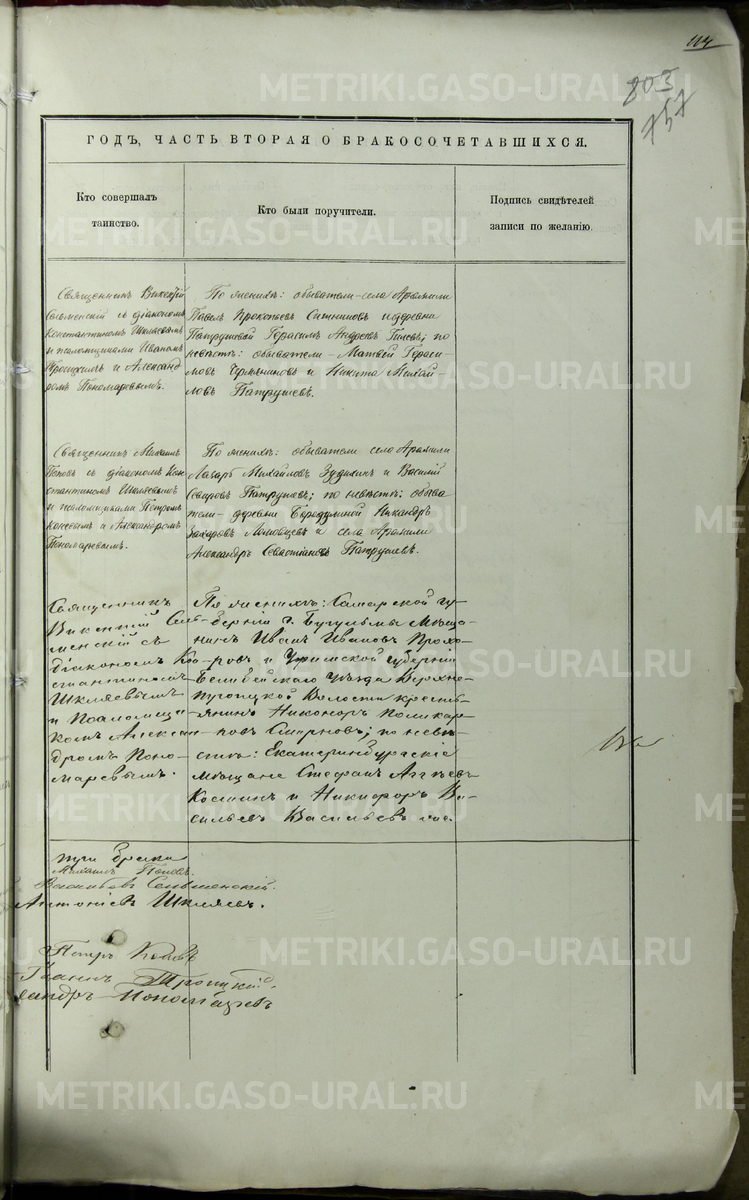 114
803
757
ГОДЪ, ЧАСТЬ ВТОРАЯ О БРАКОСОЧЕТАВШИХСЯ.
Кто совершалъ
таинство.
Кто были поручители.
Подпись свидѣтелей
записи по желанію.
Священникъ Викентій
Сельменскій съ діакономъ
Константиномъ Шкляевымъ
и псаломщиками Иваномъ
Троицкимъ и Александ
ромъ Пономаревымъ.
По женихѣ: обыватели села Арамили
Павелъ Прокопьевъ Ситниковъ и деревни
Патрушевой Герасимъ Андреевъ Гилевъ; по
невѣстѣ: обыватели Матвей Гераси
мовъ и Никита Михай
ловъ Патрушевъ.
Священникъ Михаилъ
Поповъ съ діакономъ Кон
стантиномъ Шкляевымъ
и псаломщиками Петромъ
и Александромъ
Пономаревымъ.
По женихѣ: обыватели села Арамили
Лазарь Михайловъ и Василій
Патрушевъ; по невѣстѣ: обыва
тели деревни Бородулиной Никандръ
Захаровъ и села Арамили
Александръ Севастіановъ Патрушевъ.
Священникъ
Викентій Сель
менскій съ
діакономъ Кон
стантиномъ
Шкляевымъ
и Псаломщи
комъ Алексан
дромъ Поно
маревымъ.
По женихѣ: Самарской гу
берніи г. Бугульмы Мѣща
нинъ Иванъ Ивановъ Прохо
ровъ и Уфимской Губерніи
Белибейскаго Уѣзда Верхне
троицкой Волости кресть
янинъ Никоноръ Поликар
повъ Смирновъ; по невѣ
стѣ: Екатеринбургскіе
мѣщане Стефанъ
Костинъ и Никифоръ Ва
сильевъ Васильевъ
три брака
Михаилъ Поповъ.
Сельменскій.
Шкляевъ.
Петръ
Іоаннъ Троицкій.
сандръ Пономаревъ
METRIKI.GASO-URAL.RU
METRIKI.GASO-URAL.RU
METRIKI.GASO-URAL.RU
METRIKI.GASO-URAL.RU
METRIKI.GASO-URAL.RU
METRIKI.GASO-URAL.RU
METRIKI.GASO-URAL.RU
METRIKI.GASO-URAL.RU